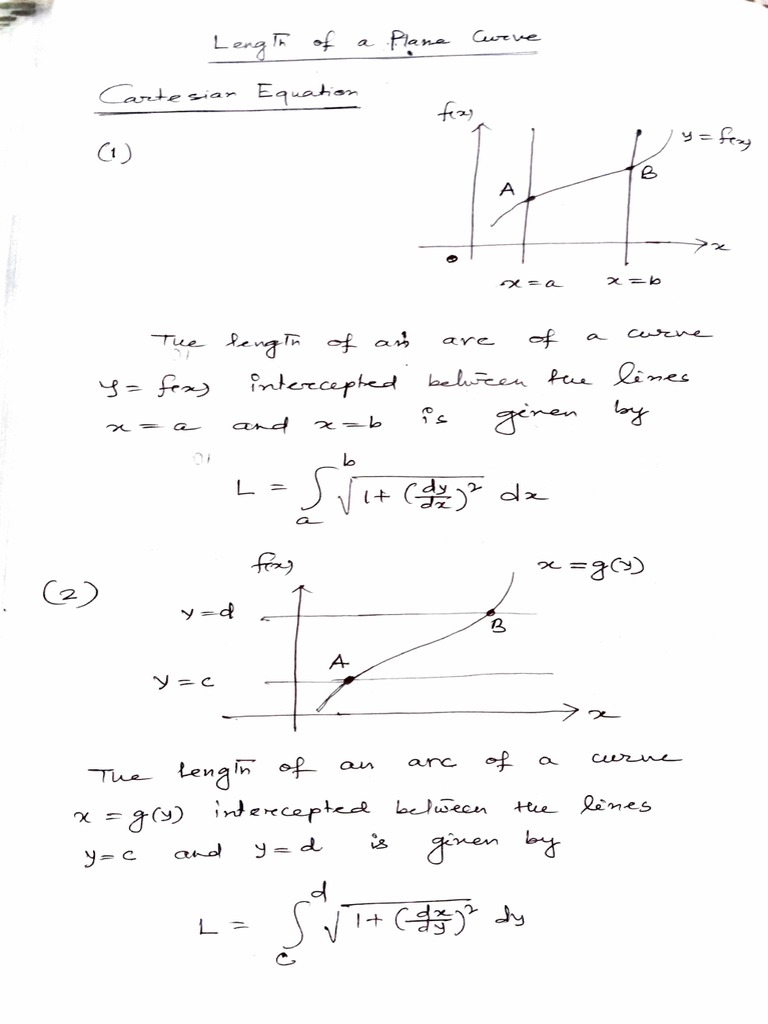 Length of a Plane Curve
Cartesian Equation
(1)
f(x)
y = f(x)
A
B
x
x = a
x = b
The length of an arc of a curve
y = f(x) intercepted between the lines
x = a and x = b is given by
L = ∫_a^b √(1 + (dy/dx)²) dx
(2)
f(x)
x = g(y)
y = d
B
A
y = c
x
The length of an arc of a curve
x = g(y) intercepted between the lines
y = c and y = d is given by
L = ∫_c^d √(1 + (dx/dy)²) dy